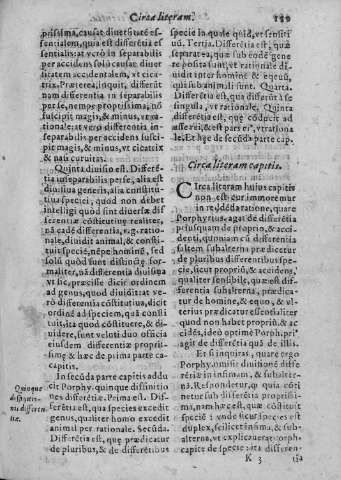 Circa literam.
prijssima, causat diuersitatē es-
sentialem, quia est differētia es
sentialis: at verò in separabilis
per accidens solū causat diuer
sitatem accidentalem, vt cica-
trix. Præterea, inquit, differūt
nam differentia in separabilis
per se, nempe proprijssima, nō
suscipit magis, & minus, vt ra
tionale: at verò differētia in-
separabilis per accidens susci-
pit magis, & minus, vt cicatrix
& nasi curuitas.
Quinta diuisio est. Differē-
tia inseparabilis per se, alia est
diuisiua generis, alia constitu
tiua speciei, quod non debet
intelligi quòd sint diuersæ dif
ferentiæ cōstitutiuæ realiter,
nā eadē differentia, e.g. ratio-
nale, diuidit animal, & consti-
tuit speciē, nēpe hominē, sed
solū quòd sunt distinctę for-
maliter, nā differentia diuisiua
vt sic, præcisse dicit ordinem
ad genus, quod diuidit: at ve-
rò differentia cōstitutiua, dicit
ordinē ad speciem, quā consti
tuit, ita quod cōstituere, & di-
uidere, sunt veluti duo officia
eiusdem differentiæ proprijs-
simę & hæc de prima parte ca-
capitis.
In secūda parte capitis addu
cit Porphy. quinque diffinitio
nes differētiæ. Prima est. Dif-
ferētia est, qua species excedit
genus, qualiter homo excedit
animal per rationale. Secūda.
Differētia est, quę prædicatur
de pluribus, & de differētibus
Quinque
differentiæ.
specie in quale quid, vt sensiti
uū. Tertia. Differētia est, quæ
separat ea, quæ sub eodē gene
re posita sunt, vt rationale di-
uidit inter hominē & equū,
qui sub animali sunt. Quarta.
Differentia est, qua differūt à se
singula, vt rationale. Quinta
differētia est, quę cōducit ad
esse rei, & est pars ei⁹, vt rationa
le. Et hęc de secūda parte cap.
Circa literam capitis.
Circa literam huius capitis
non est cur immoremur
in reddēda ratione, quare
Porphyrius, agat de differētia
postquam de proprio, & acci-
denti, quoniam cū differentia
saltem subalterna prædicetur
de pluribus differentibus spe-
cie, sicut propriū, & accidens,
qualiter sensibile, quæ est dif-
ferentia subalterna, prædica-
tur de homine, & equo, & vl-
terius prædicatur essentialiter
quod non habet propriū, & ac
cidēs, ideo optime Porph. pri⁹
agit de differētia quā de illis.
Et si inquiras, quare ergo
Porphy. omisit diuisionē diffe
rētiæ in infimam, & subalter-
nā. Respondetur, quia cōti
netur sub differētia proprijssi-
ma, nam hæc est, quæ cōstituit
speciē: vnde sicut species est
duplex, scilicet infima, & sub-
alterna, vt explicauerat Porph.
capite de specie: ita differen-
K 3